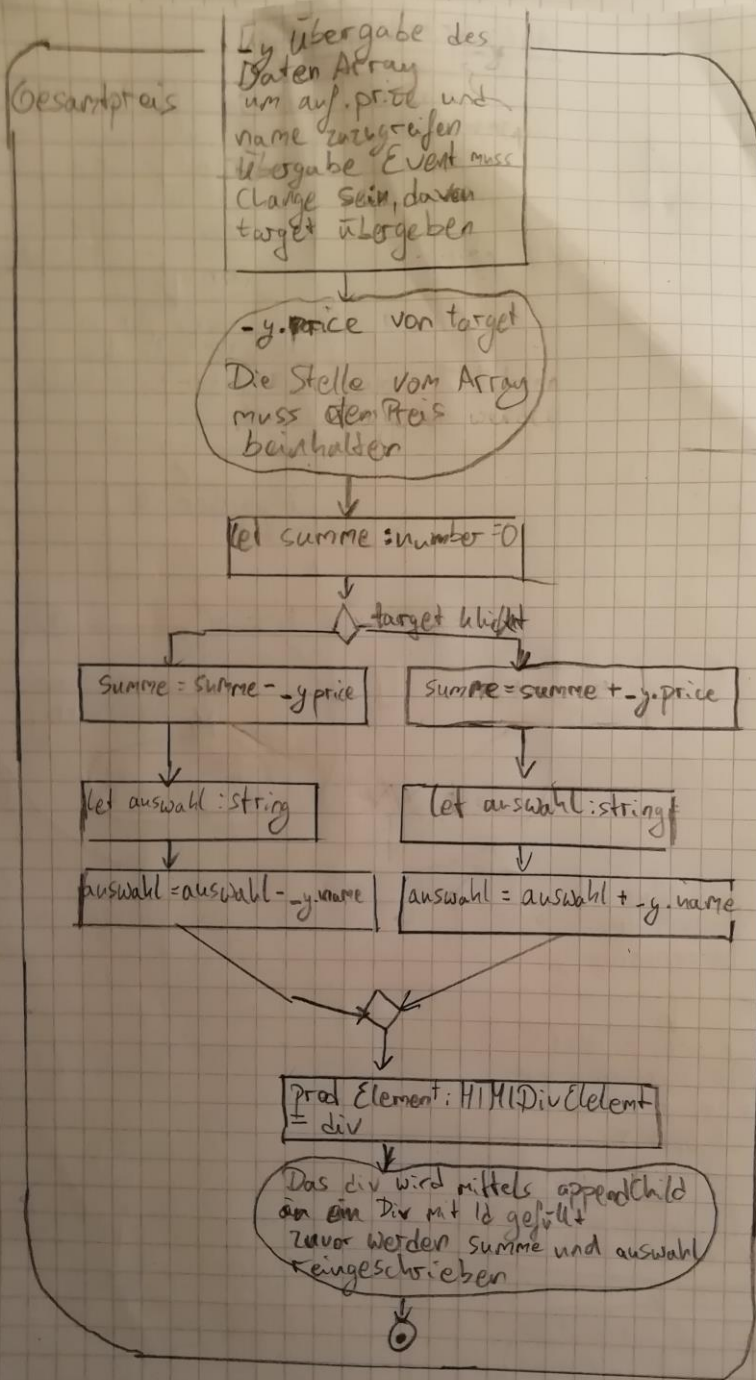 Gesamtpreis
-y Übergabe des
Daten Array
um auf.price und
name zuzugreifen
Übergabe Event muss
Change sein, davon
target übergeben
-y.price von target
Die Stelle vom Array
muss den Preis
beinhalten
let summe :number=0
target klickt
summe = summe - -y price
summe = summe + -y.price
let auswahl :string
let auswahl :string
auswahl = auswahl - -y.name
auswahl = auswahl + -y.name
prod Element: HTMlDivElelemt
= div
Das div wird mittels appendChild
an ein Div mit Id gefüllt
zuvor werden summe und auswahl
reingeschrieben